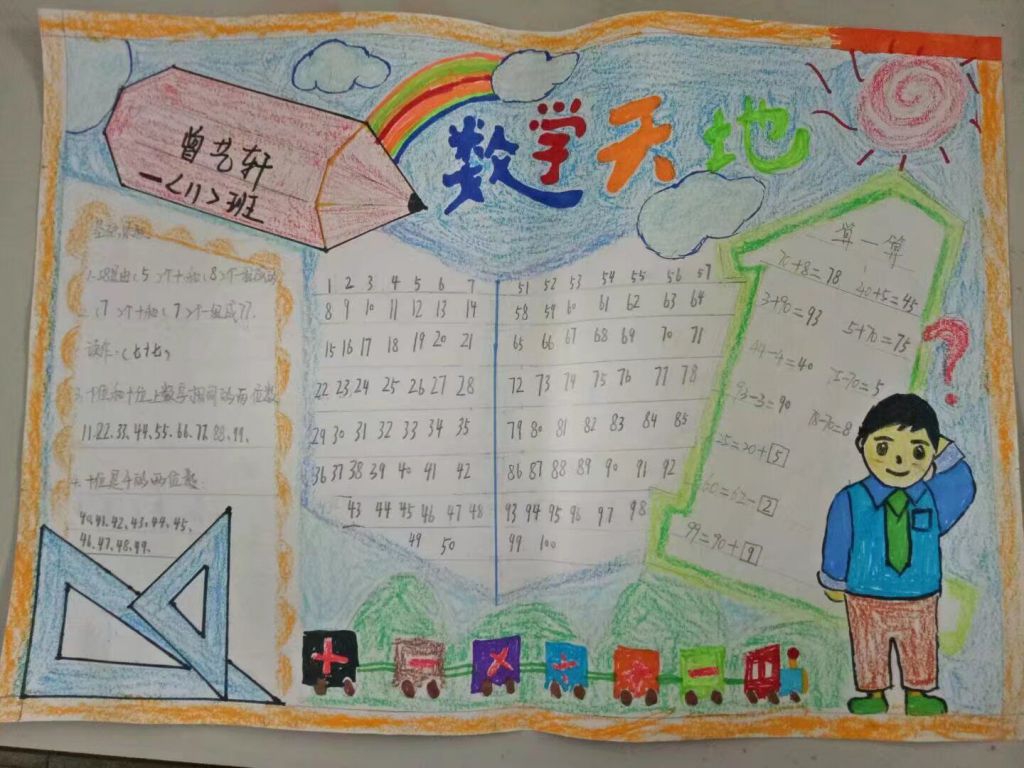 数学天地
曾艺轩
一<11>班
1.58是由(5)个十和(8)个一组成的
2.(7)个十和(7)个一组成77.
读作:(七十七)
3.个位和十位上数字相同的两位数
11.22.33.44.55.66.77.88.99.
4.十位是4的两位数:
40.41.42.43.44.45.
46.47.48.49.
1 2 3 4 5 6 7
8 9 10 11 12 13 14
15 16 17 18 19 20 21
22 23 24 25 26 27 28
29 30 31 32 33 34 35
36 37 38 39 40 41 42
43 44 45 46 47 48
49 50
51 52 53 54 55 56 57
58 59 60 61 62 63 64
65 66 67 68 69 70 71
72 73 74 75 76 77 78
79 80 81 82 83 84 85
86 87 88 89 90 91 92
93 94 95 96 97 98
99 100
算一算
70+8=78
40+5=45
3+90=93
5+70=75
44-4=40
75-70=5
93-3=90
78-70=8
25=20+5
60=62-2
99=90+9
?
+ - × ÷ ÷ -